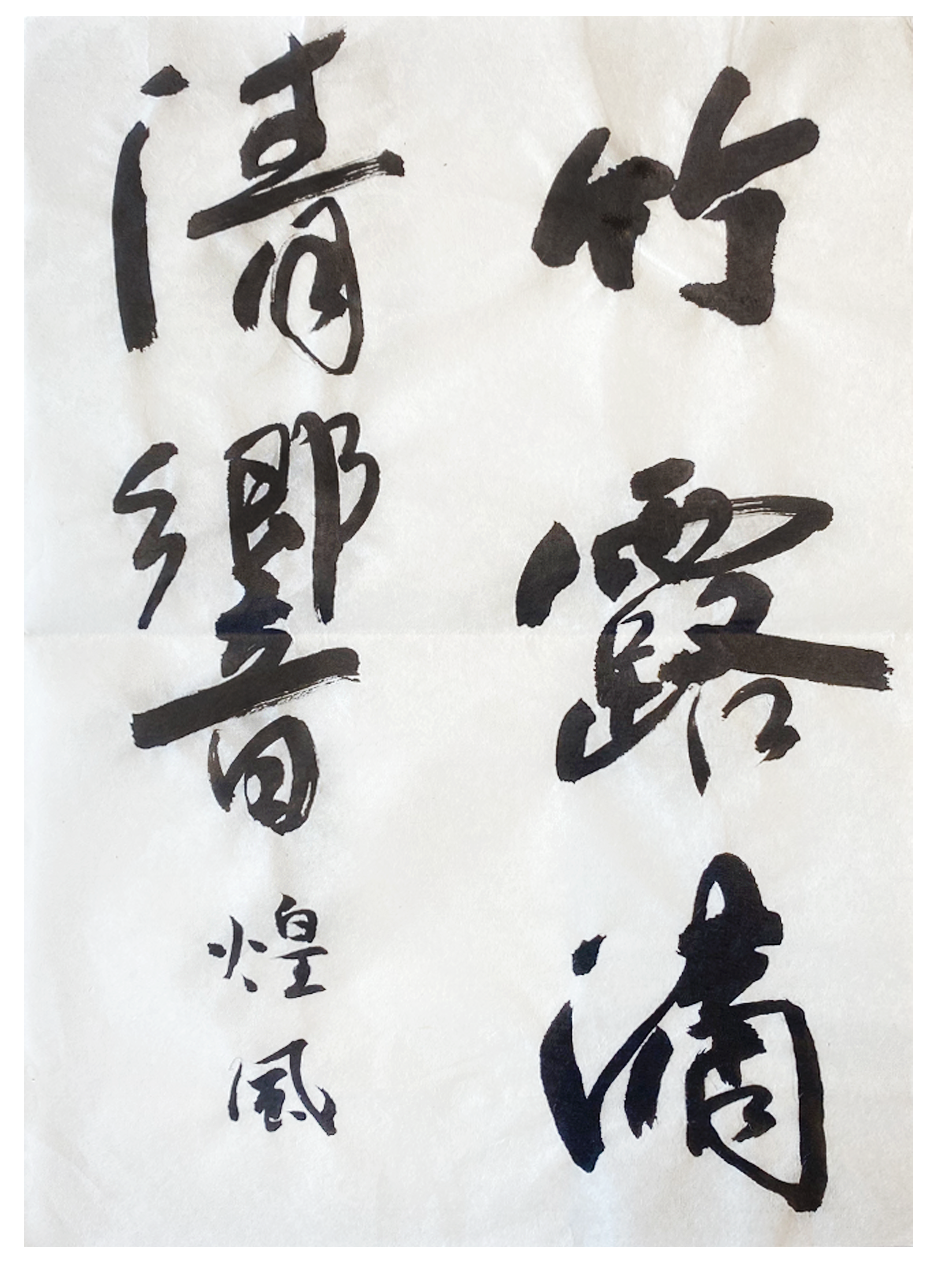 竹露滴
清響
煌風